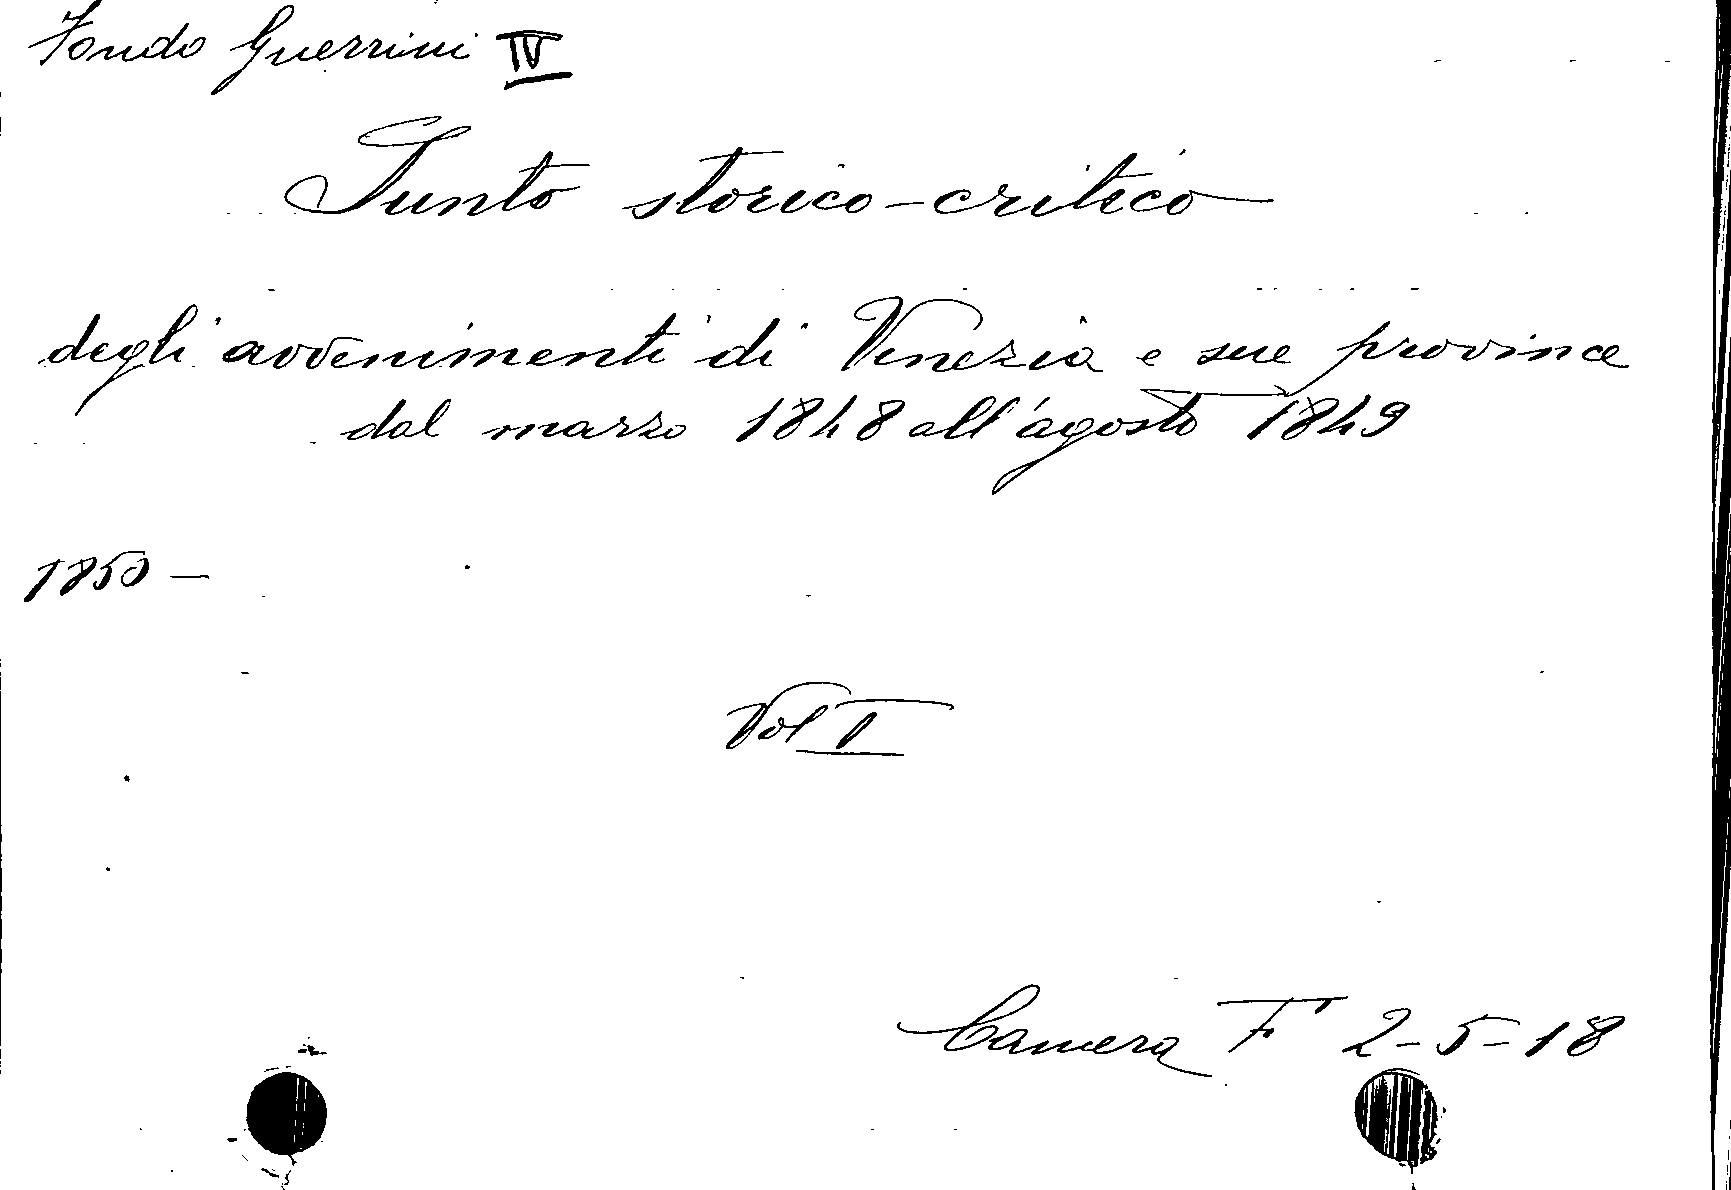 Fondo Guerrini IV
Sunto storico-critico
degli avvenimenti di Venezia e sue province
dal marzo 1848 all'agosto 1849
1850 —
Vol I
Camera F' 2-5-18